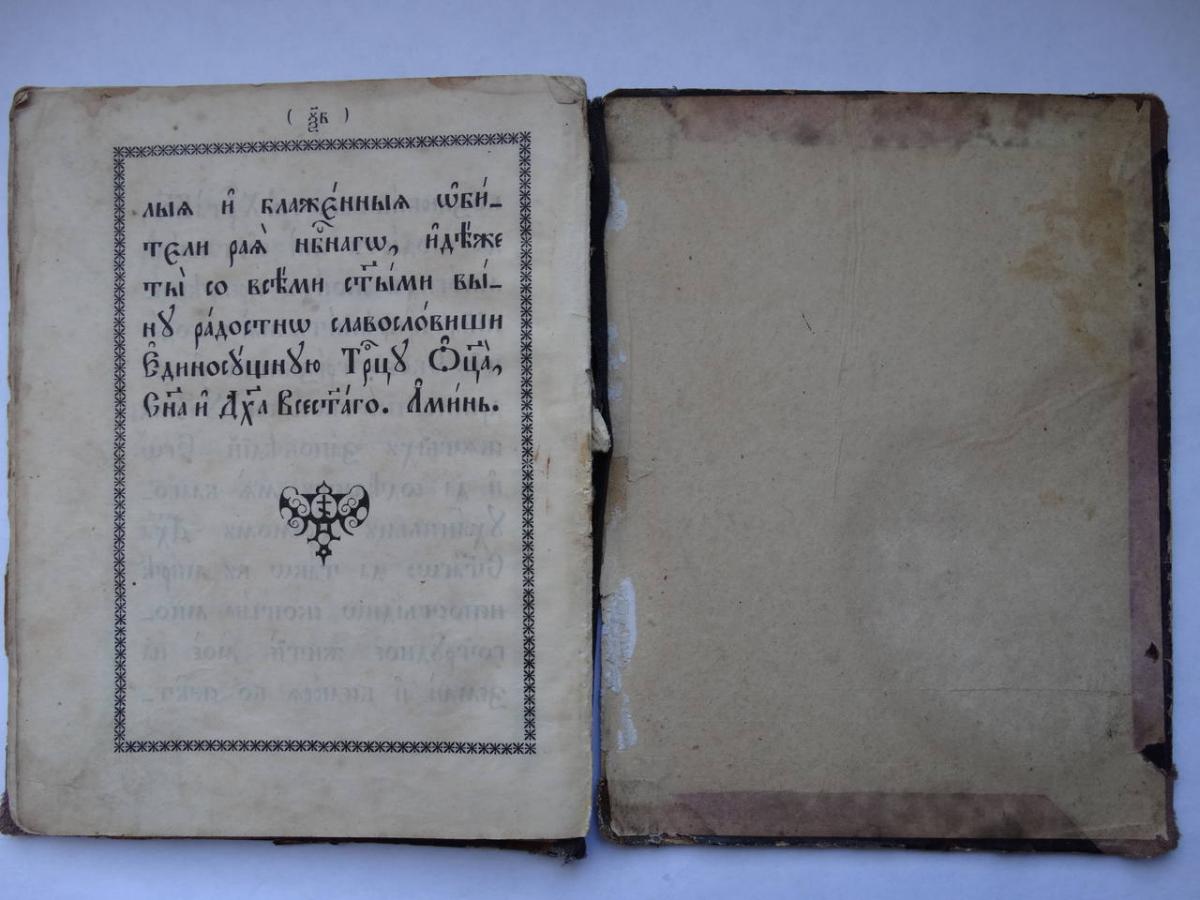 лыѧ и҆ блаже́нныѧ ѡ҆би́-
тели раѧ̀ нбⷭ҇нагѡ, и҆дѣ́же
ты̀ со всѣ́ми ст҃ы́ми вы́-
нꙋ ра́достнѡ славосло́виши
Є҆диносꙋ́щнꙋю Трⷪ҇цꙋ Ѻ҆ц҃а̀,
Сн҃а и҆ Дх҃а Всест҃а́го. А҆ми́нь.